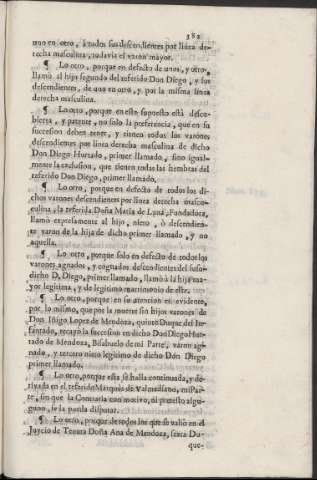 382
uno en otro, à todos sus descendientes por linea de-
recha masculina, todavia el varon mayor.
¶ Lo otro, porque en defecto de unos, y otro,
llamò al hijo segundo del referido Don Diego, y sus
descendientes, de uno en otro, y por la misma linea
derecha masculina.
¶ Lo otro, porque en este supuesto està descu-
bierta, y patente, no solo la preferencia, que en su
succesion deben tener, y tienen todos los varones
descendientes por linea derecha masculina de dicho
Don Diego Hurtado, primer llamado, sino igual-
mente la exclusion, que tienen todas las hembras del
referido Don Diego, primer llamado.
¶ Lo otro, porque en defecto de todos los di-
chos varones descendientes por linea derecha masc-
culina, la referida Doña Maria de Luna, Fundadora,
llamò expresamente al hijo, nieto, ò descendien-
te varon de la hija de dicho primer llamado, y no
aquella.
¶ Lo otro, porque solo en defecto de todos los
varones agnados, y cognados descendientes del suso-
dicho D. Diego, primer llamado, llamò à la hija ma-
yor legitima, y de legitimo matrimonio de este.
¶ Lo otro, porque en su atencion es evidente,
por lo mismo, que por la muerte sin hijos varones de
Don Iñigo Lopez de Mendoza, quinto Duque del In-
fantado, recayò la succesion en dicho Don Diego Hur-
tado de Mendoza, Bisabuelo de mi Parte, varon agna-
do, y tercero nieto legitimo de dicho Don Diego
primer llamado.
¶ Lo otro, porque esta se halla continuada, y de-
rivada en el referido Marquès de Valmediano, mi Par-
te, sin que la Contraria con motivo, ni pretexto algu-
guno, se la pueda disputar.
¶ Lo otro, porque de todos los que se valiò en el
Juycio de Tenuta Doña Ana de Mendoza, sexta Du-
que-